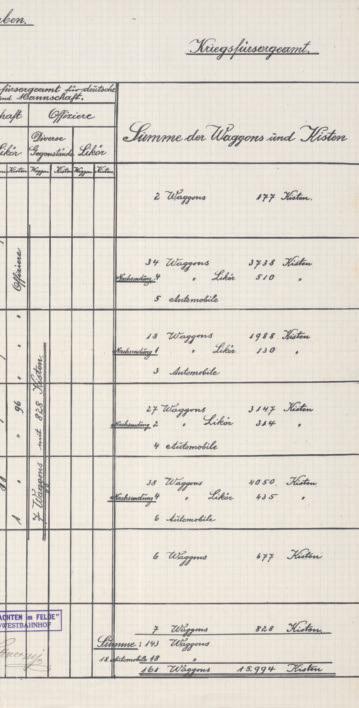 ben.
Kriegsfürsorgeamt.
fürsorgeamt für deutsche
und Mannschaft.
haft Offiziere
Likör Diverse Gegenstände Likör
Summe der Waggons und Kisten
Kisten Waggon Kisten Waggon Kisten
2 Waggons 177 Kisten.
34 Waggons 3738 Kisten
Nachsendung 4 " Likör 510 "
5 Automobile
Offiziere
18 Waggons 1988 Kisten
Nachsendung 1 " Likör 130 "
3 Automobile
27 Waggons 3147 Kisten
Nachsendung 2 " Likör 314 "
4 Automobile
96
7 Waggons mit 828 Kisten
38 Waggons 4050 Kisten
Nachsendung 4 " Likör 435 "
6 Automobile
1
6 Waggons 677 Kisten
7 Waggons 828 Kisten
Summe: 143 Waggons
18 Automobile 18 "
161 Waggons 15.994 Kisten
ACHTEN im FELDE"
WESTBAHNHOF